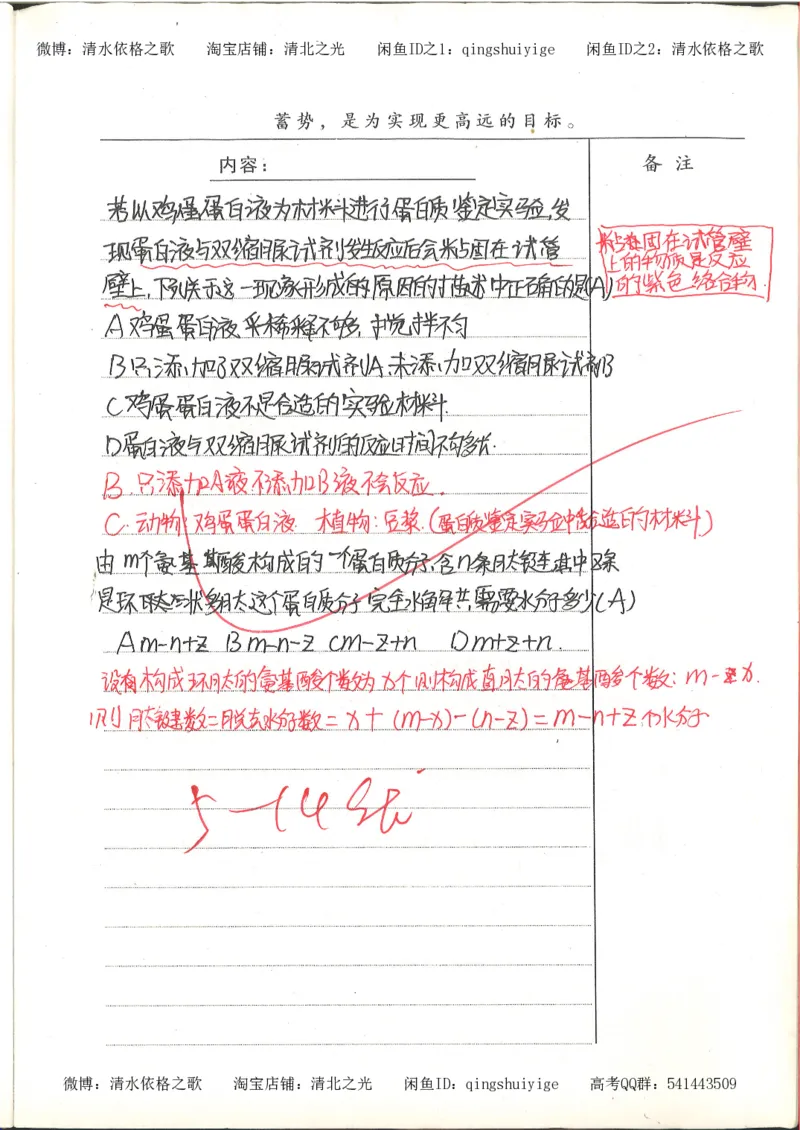 微博：清水依格之歌 淘宝店铺：清北之光 闲鱼ID之1：qingshuiyige 闲鱼ID之2：清水依格之歌
蓄势，是为实现更高远的目标。
内容：
备 注
若以鸡蛋蛋白液为材料进行蛋白质鉴定实验,发
现蛋白液与双缩脲试剂发生反应后会粘固在试管
壁上,下列关于这一现象形成的原因的描述中正确的是(A)
粘固在试管壁
上的物质是反应
的紫色络合物.
A 鸡蛋蛋白液稀释不够,搅拌不匀
B 只添加了双缩脲试剂A,未添加双缩脲试剂B
C 鸡蛋蛋白液不是合适的实验材料.
D 蛋白液与双缩脲试剂的反应时间不够长.
B. 只添加A液不添加B液不会反应.
C. 动物:鸡蛋蛋白液 植物:豆浆.(蛋白质鉴定实验中合适的材料)
由m个氨基酸构成的一个蛋白质分子,含n条肽链,其中z条
是环状多肽这个蛋白质分子完全水解共需要水分子多少(A)
A m-n+z B m-n-z C m-z+n D m+z+n.
设有构成环肽的氨基酸个数为x个则构成直肽的氨基酸个数:m-x.
则肽键数=脱去水分子数=x+(m-x)-(n-z)=m-n+z个水分子
5-14
微博：清水依格之歌 淘宝店铺：清北之光 闲鱼ID：qingshuiyige 高考QQ群：541443509